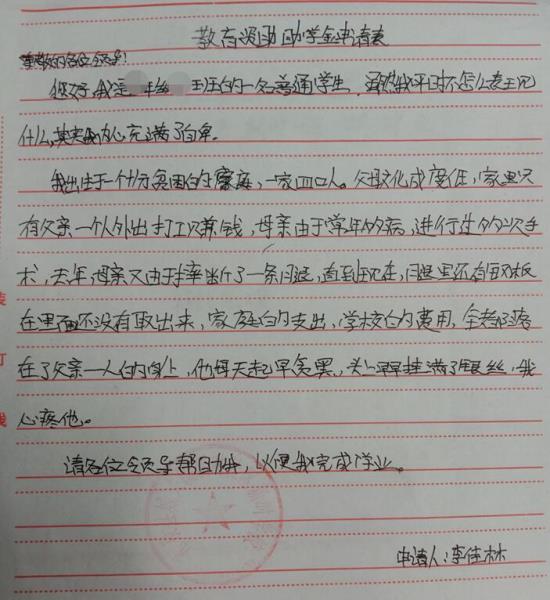 教育资助助学金申请表
尊敬的各位领导！
您好，我是年级 班的一名普通学生，虽然我平时不怎么表现
什么，其实我内心充满了自卑。
我出生于一个十分贫困的家庭，一家四口人。父母文化成度低，家里只
有父亲一个人外出打工挣钱，母亲由于常年的病，进行过的次手
术，去年母亲又由于摔断了一条腿，直到现在，腿里还有钢板
在里面还没有取出来，家庭的支出，学校的费用，全都落
在了父亲一人的身上，他每天起早贪黑，头上早挂满了银丝，我
心疼他。
请各位领导帮助我，以便我完成学业。
申请人：李佳林